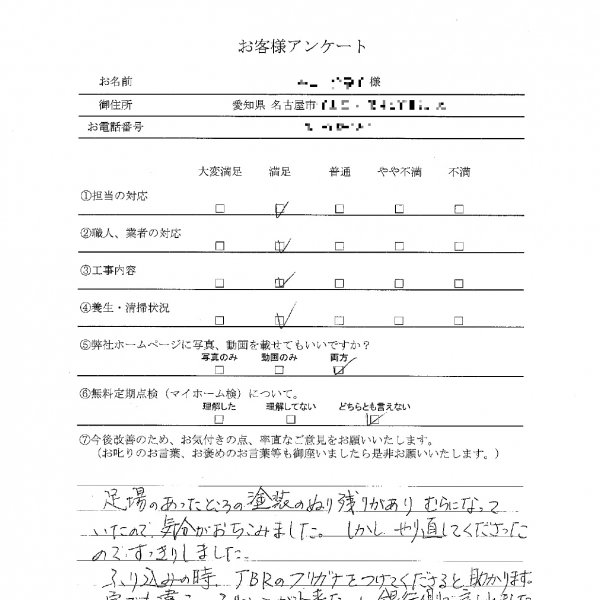 お客様アンケート
お名前 様
御住所 愛知県 名古屋市
お電話番号
大変満足 満足 普通 やや不満 不満
①担当の対応
②職人、業者の対応
③工事内容
④養生・清掃状況
⑤弊社ホームページに写真、動画を載せてもいいですか？
写真のみ 動画のみ 両方
⑥無料定期点検（マイホーム検）について。
理解した 理解してない どちらとも言えない
⑦今後改善のため、お気付きの点、率直なご意見をお願いいたします。
（お叱りのお言葉、お褒めのお言葉等も御座いましたら是非お願いいたします。）
足場のあったところの塗装のぬり残りがあり むらになって
いたので、気分がおちこみました。しかし やり直してくださった
のですっきりしました。
ふり込みの時、TBRのフリガナをつけてくださると助かります。